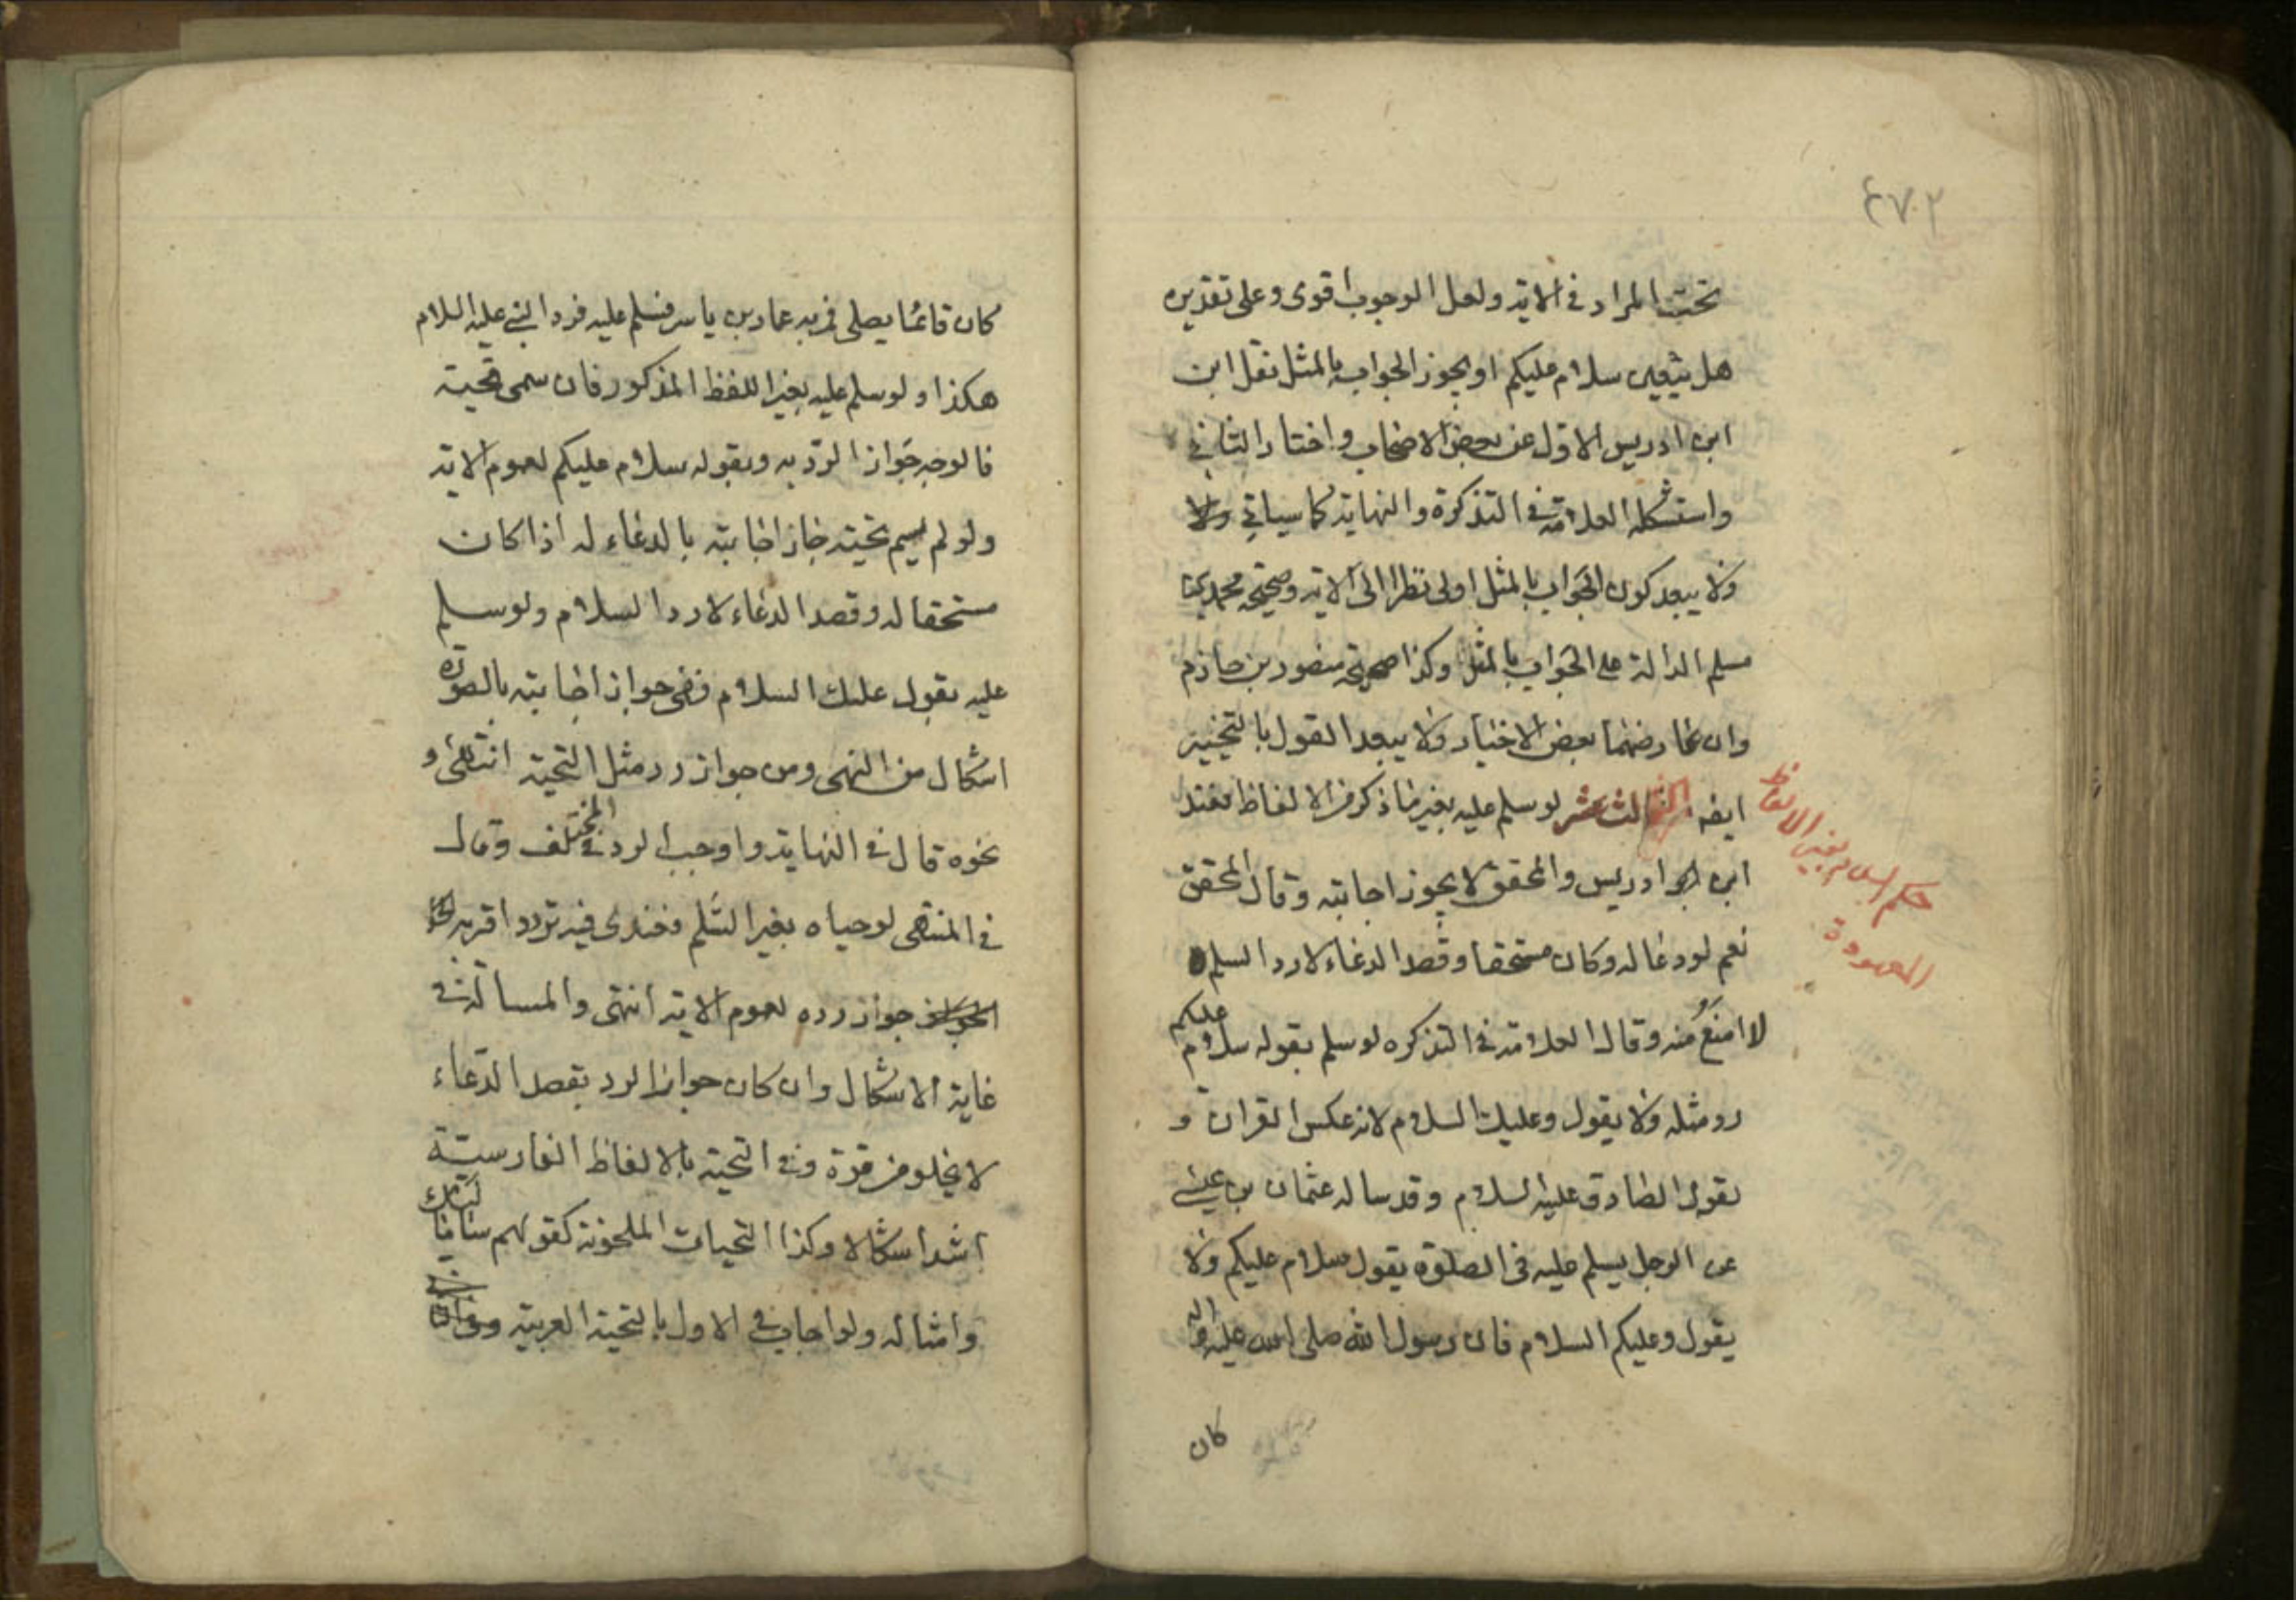 ٤٧٢
تحت المراد في الاية ولعل الوجوب اقوى وعلى تقديره
هل يتعين سلام عليكم او يجوز الجواب بالمثل نقل ابن
ابن ادريس الاول عن بعض الاصحاب واختار الثاني
واستشكله العلامة في التذكرة والنهاية كما سياتي ولا
ولا يبعد كون الجواب بالمثل اولى نظرا الى الاية وصحيحة محمد بن
مسلم الدالة على الجواب بالمثل وكذا صحيحة منصور بن حازم
وان عارضهما بعض الاخبار ولا يبعد القول بالتخيير
ايضه الثالث عشر لو سلم عليه بغير ما ذكر من الالفاظ فعند
ابن ادريس والمحقق لا يجوز اجابته وقال المحقق
نعم لو دعا له وكان مستحقا وقصد الدعاء لا رد السلم
لا امنع منه وقال العلامة في التذكره لو سلم بقوله سلام عليكم
رد مثله ولا يقول وعليك السلام لانه عكس القران و
لقول الصادق عليه السلام وقد ساله عثمان بن عيسى
عن الرجل يسلم عليه في الصلوة يقول سلام عليكم ولا
يقول وعليكم السلام فان رسول الله صلى الله عليه واله
كان
حكم السلام بغير الالفاظ
المعهودة
كان قائما يصلي فمر به عمار بن ياسر فسلم عليه فرد النبي عليه السلام
هكذا ولو سلم عليه بغير اللفظ المذكور فان سمى تحية
فالوجه جواز الرد به وبقوله سلام عليكم لعموم الاية
ولو لم يسم تحية جاز اجابته بالدعاء له اذا كان
مستحقا له وقصد الدعاء لا رد السلام ولو سلم
عليه بقول عليك السلام ففي جواز اجابته بالصورة
اشكال من النهى ومن جواز رد مثل التحية انتهى و
نحوه قال في النهاية واوجب الرد في المختلف وقال
في المنتهى لو حياه بغير السلم فعندى فيه تردد اقربه
جواز رده لعموم الاية انتهى والمسالة في
غاية الاشكال وان كان جواز الرد بقصد الدعاء
لا يخلو من قوة وفي التحية بالالفاظ الفارسية
اشد اشكالا وكذا التحيات الملحونة كقولهم
وامثاله ولو اجاب في الاول بالتحية العربية